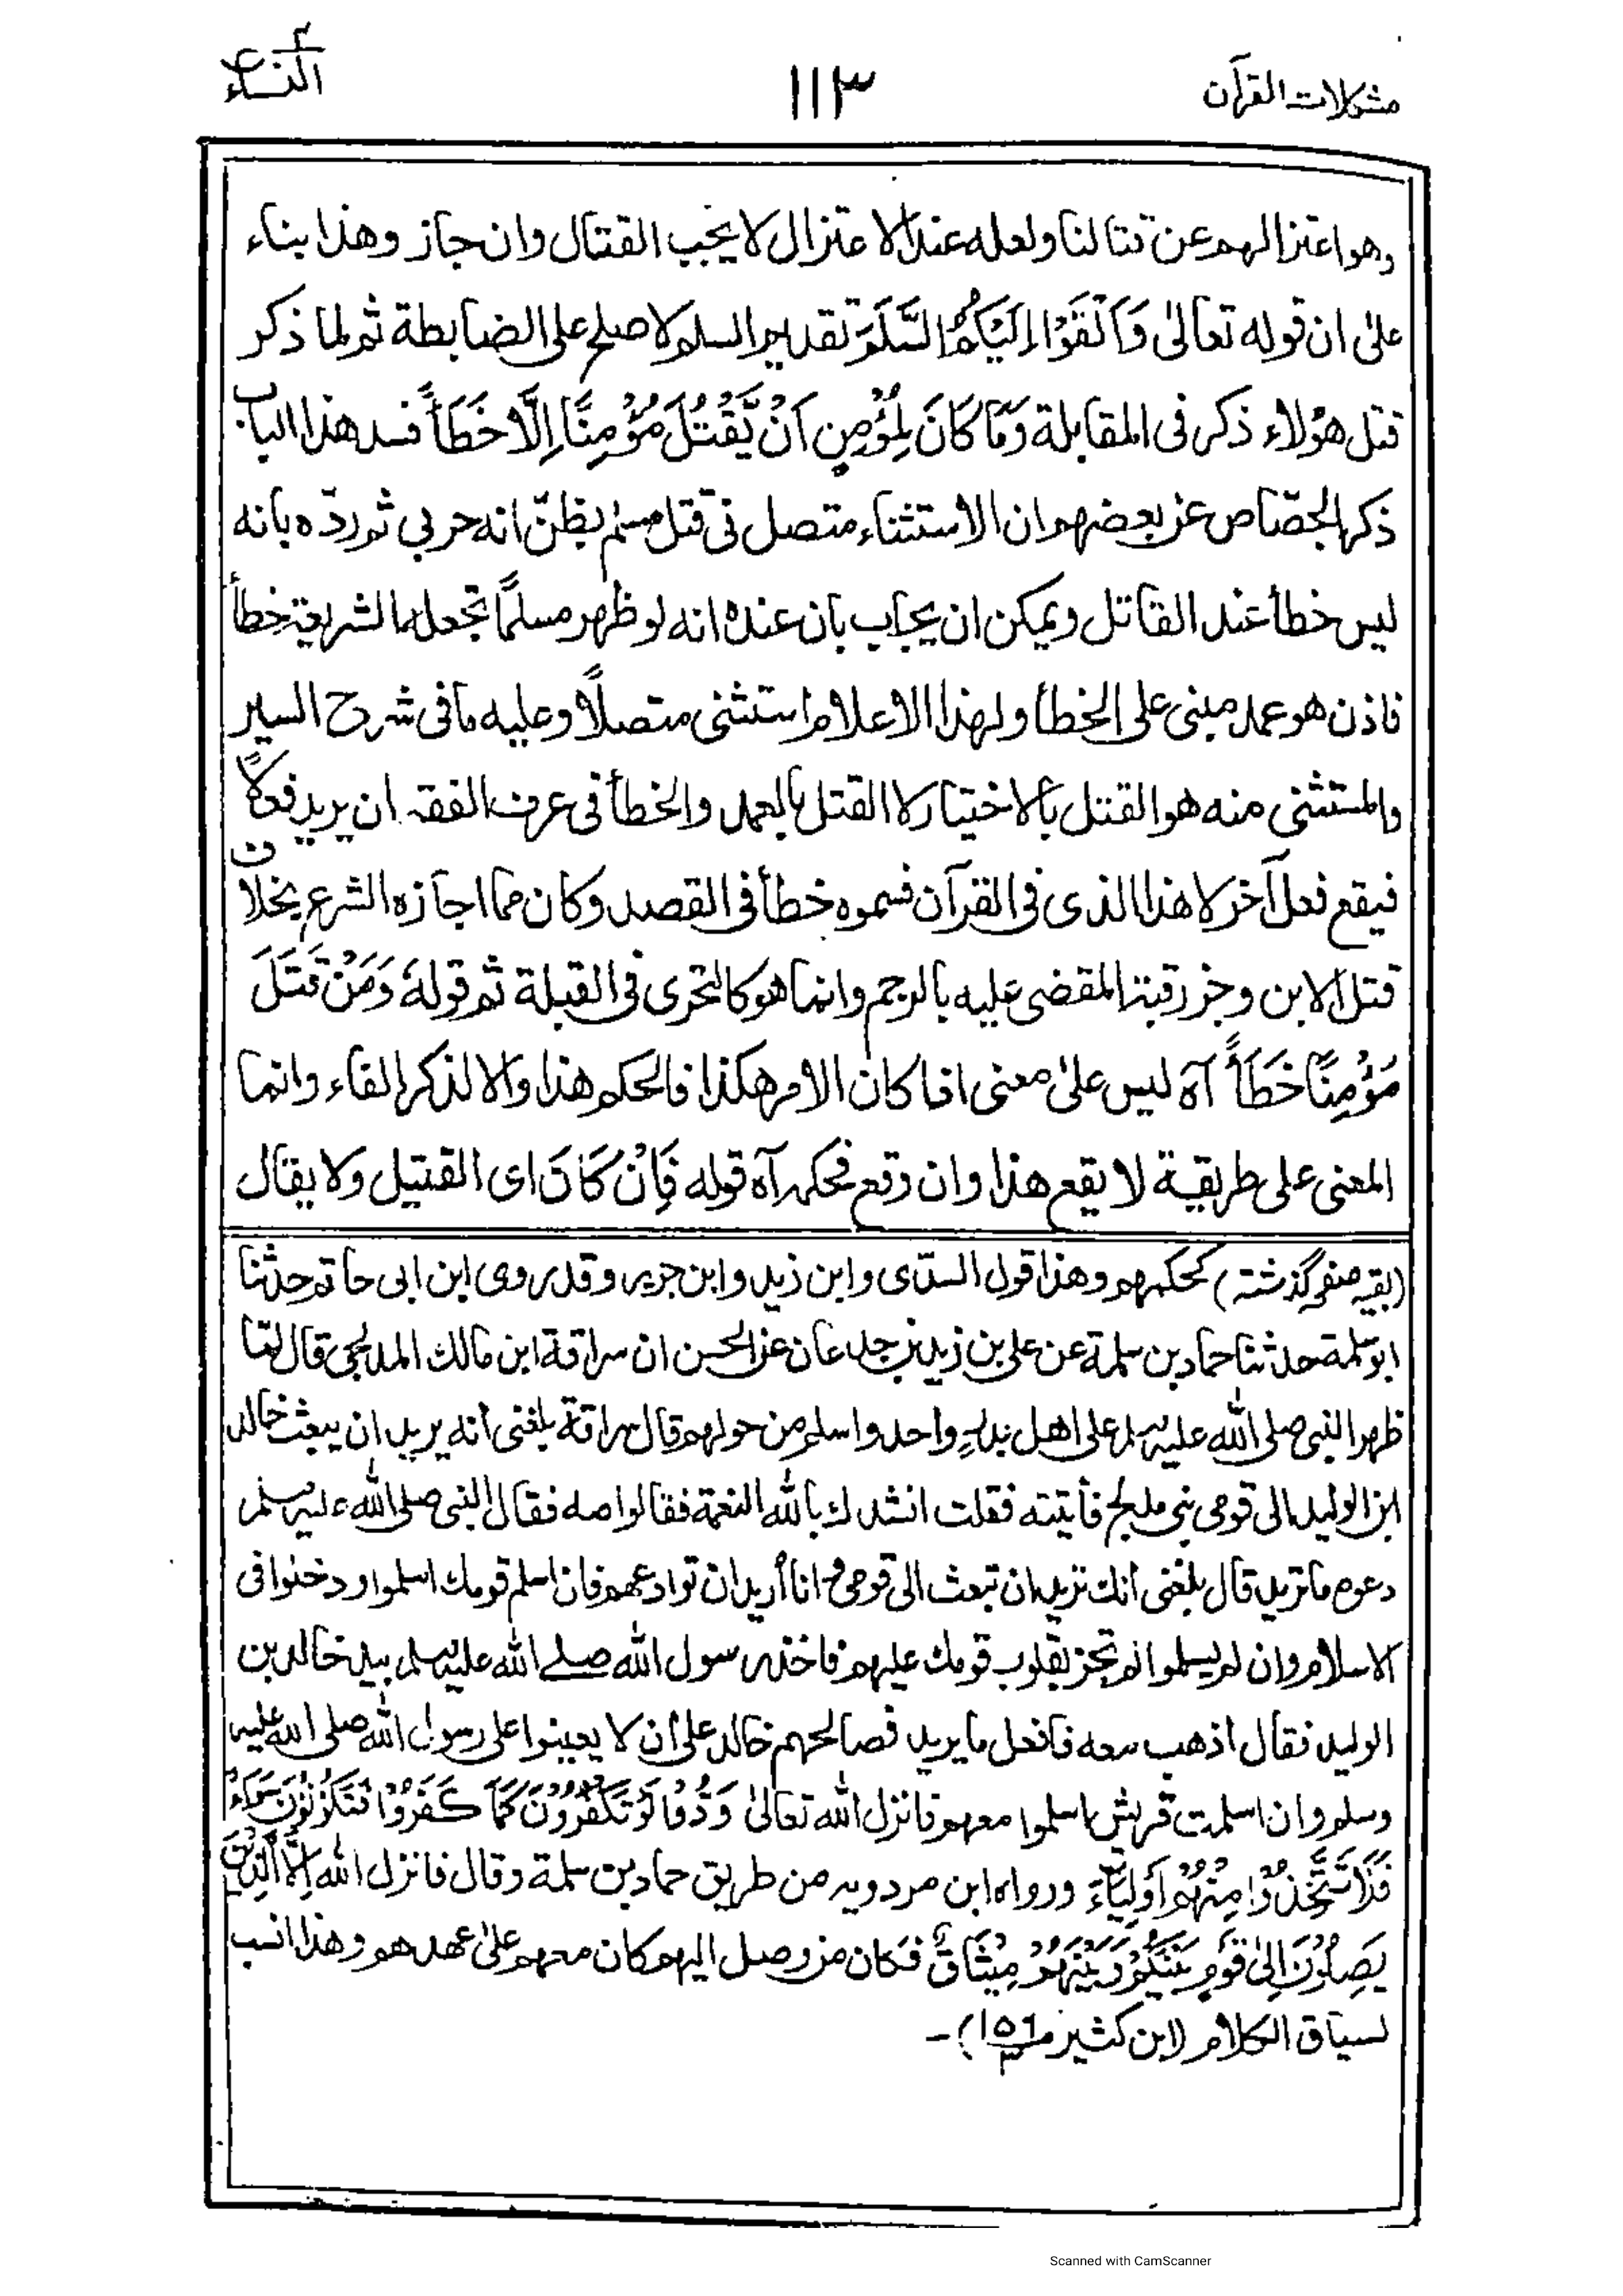 مشكلات القرآن
١١٣
النساء ٤
وهو اعتزالهم عن قتالنا ولعله عند الاعتزال لا يجب القتال وان جاز وهذا بناء
على ان قوله تعالىٰ وَاَلْقَوْا اِلَيْكُمُ السَّلَمَ تقديم السلم لا صلح على الضابطة ثم لما ذكر
قتل هؤلاء ذكر فى المقابلة وَمَا كَانَ لِمُؤْمِنٍ اَنْ يَّقْتُلَ مُؤْمِنًا اِلَّا خَطَأً فسد هذا الباب
ذكر الجصّاص عن بعضهم ان الاستثناء متصل فى قتل مسلم يظنّ انه حربي ثم ردّه بانه
ليس خطأ عند القاتل ويمكن ان يجاب بان عنده انه لو ظهر مسلمًا تجعلها الشريعة خطأ
فاذن هو عمد مبنى على الخطأ ولهذا الاعلام استثنى متصلًا وعليه ما فى شرح السير
والمستثنى منه هو القتل بالاختيار لا القتل بالعمد والخطأ فى عرف الفقه ان يريد فعلًا
فيقع فعل آخر لا هذا الذى فى القرآن فسموه خطأ فى القصد وكان مما اجازه الشرع بخلاف
قتل الابن وجز رقبة المقضى عليه بالرجم وانما هو كالتحرى فى القبلة ثم قوله وَمَنْ قَتَلَ
مُؤْمِنًا خَطَأً آه ليس علىٰ معنى اذا كان الامر هكذا فالحكم هذا والا لذكر الفاء وانما
المعنى على طريقية لا يقع هذا وان وقع فحكمه آه قوله فَاِنْ كَانَ اى القتيل ولا يقال
(بقيه صفر گذشته) كحكمهم وهذا قول السدّى وابن زيد وابن جرير وقد روى ابن ابى حاتم حدثنا
ابو سلمة حدثنا حماد بن سلمة عن على بن زيد بن جدعان عن الحسن ان سراقة ابن مالك المدلجى قال لمّا
ظهر النبى صلى الله عليه وسلم على اهل بدرٍ واحد واسلم من حولهم قال سراقة بلغنى انه يريد ان يبعث خالد
ابن الوليد الى قومى بنى مدلج فأتيته فقلت انشدك بالله النعمة فقالوا صه فقال النبى صلى الله عليه وسلم
دعوه ما تريد قال بلغنى انك تريد ان تبعث الى قومى وانا أريد ان توادعهم فان اسلم قومك اسلموا ودخلوا فى
الاسلام وان لم يسلموا لم تحز بقلوب قومك عليهم فاخذ رسول الله صلے الله عليه وسلم بيد خالد بن
الوليد فقال اذهب معه فافعل ما يريد فصالحهم خالد على أن لا يعينوا على رسول الله صلى الله عليه
وسلم وان اسلمت قريش اسلموا معهم فانزل الله تعالىٰ وَدُّوْا لَوْ تَكْفُرُوْنَ كَمَا كَفَرُوْا فَتَكُوْنُوْنَ سَوَآءً
فَلَا تَتَّخِذُوْا مِنْهُمْ اَوْلِيَآءَ ورواه ابن مردويه من طريق حماد بن سلمة وقال فانزل الله اِلَّا الَّذِيْنَ
يَصِلُوْنَ اِلىٰ قَوْمٍ بَيْنَكُمْ وَبَيْنَهُمْ مِيْثَاقٌ فكان من وصل اليهم كان معهم علىٰ عهدهم وهذا انسب
لسياق الكلام (ابن كثير ص١٥٦ ج٣)-
Scanned with CamScanner